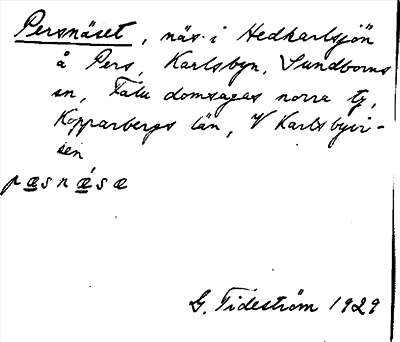 Persnäset, näs i Hedkarlsjön
å Pers, Karlsbyn, Sundborns
sn, Falu domsagas norra tg,
Kopparbergs län, V Karlsbyvi-
ken
pæsnǽsæ
G. Tideström 1929